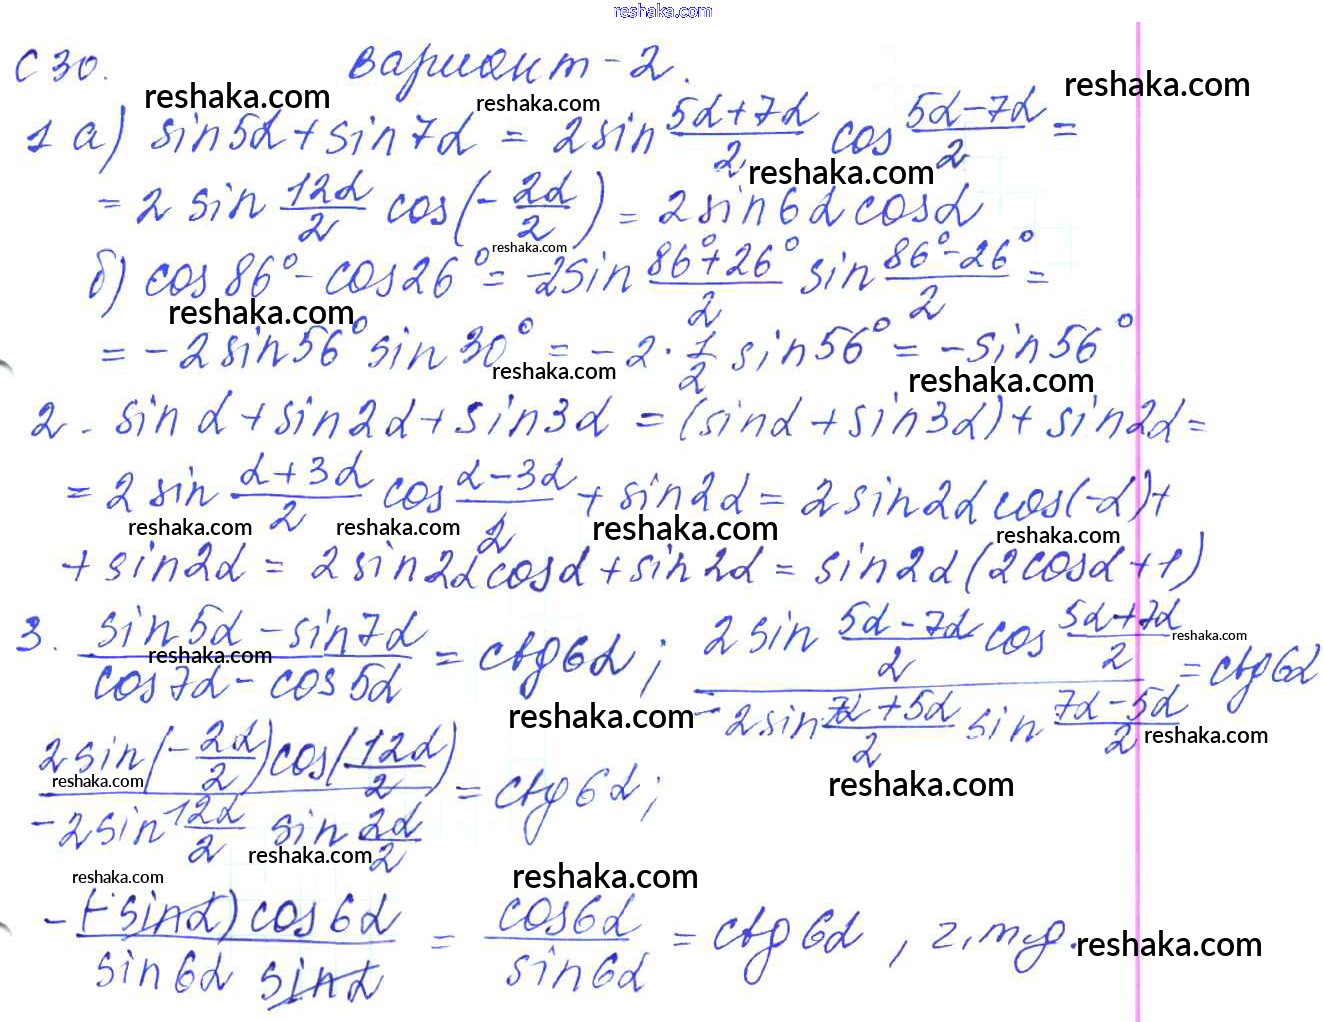 reshaka.com
С 30. вариант - 2.
reshaka.com reshaka.com reshaka.com
1 а) sin5α + sin7α = 2 sin (5α+7α)/2 cos (5α-7α)/2 =
reshaka.com
= 2 sin 12α/2 cos(-2α/2) = 2 sin6α cosα
reshaka.com
б) cos 86° - cos26° = -2sin (86°+26°)/2 sin (86°-26°)/2 =
reshaka.com
= -2 sin56° sin 30° = -2 · 1/2 sin56° = -sin56°
reshaka.com reshaka.com
2. sin α + sin2α + sin3α = (sinα + sin3α) + sin2α =
= 2 sin (α+3α)/2 cos (α-3α)/2 + sin2α = 2 sin2α cos(-α) +
reshaka.com reshaka.com reshaka.com reshaka.com
+ sin2α = 2 sin2α cosα + sin2α = sin2α (2cosα + 1)
3. (sin5α - sin7α)/(cos7α - cos5α) = ctg6α; (2 sin (5α-7α)/2 cos (5α+7α)/2)/(-2sin (7α+5α)/2 sin (7α-5α)/2) = ctg6α
reshaka.com reshaka.com reshaka.com reshaka.com
(2 sin(-2α/2) cos(12α/2))/(-2 sin 12α/2 sin 2α/2) = ctg6α;
reshaka.com reshaka.com reshaka.com
reshaka.com reshaka.com
-(-sinα) cos6α/(sin6α sinα) = cos6α/sin6α = ctg6α, г.т.д.
reshaka.com